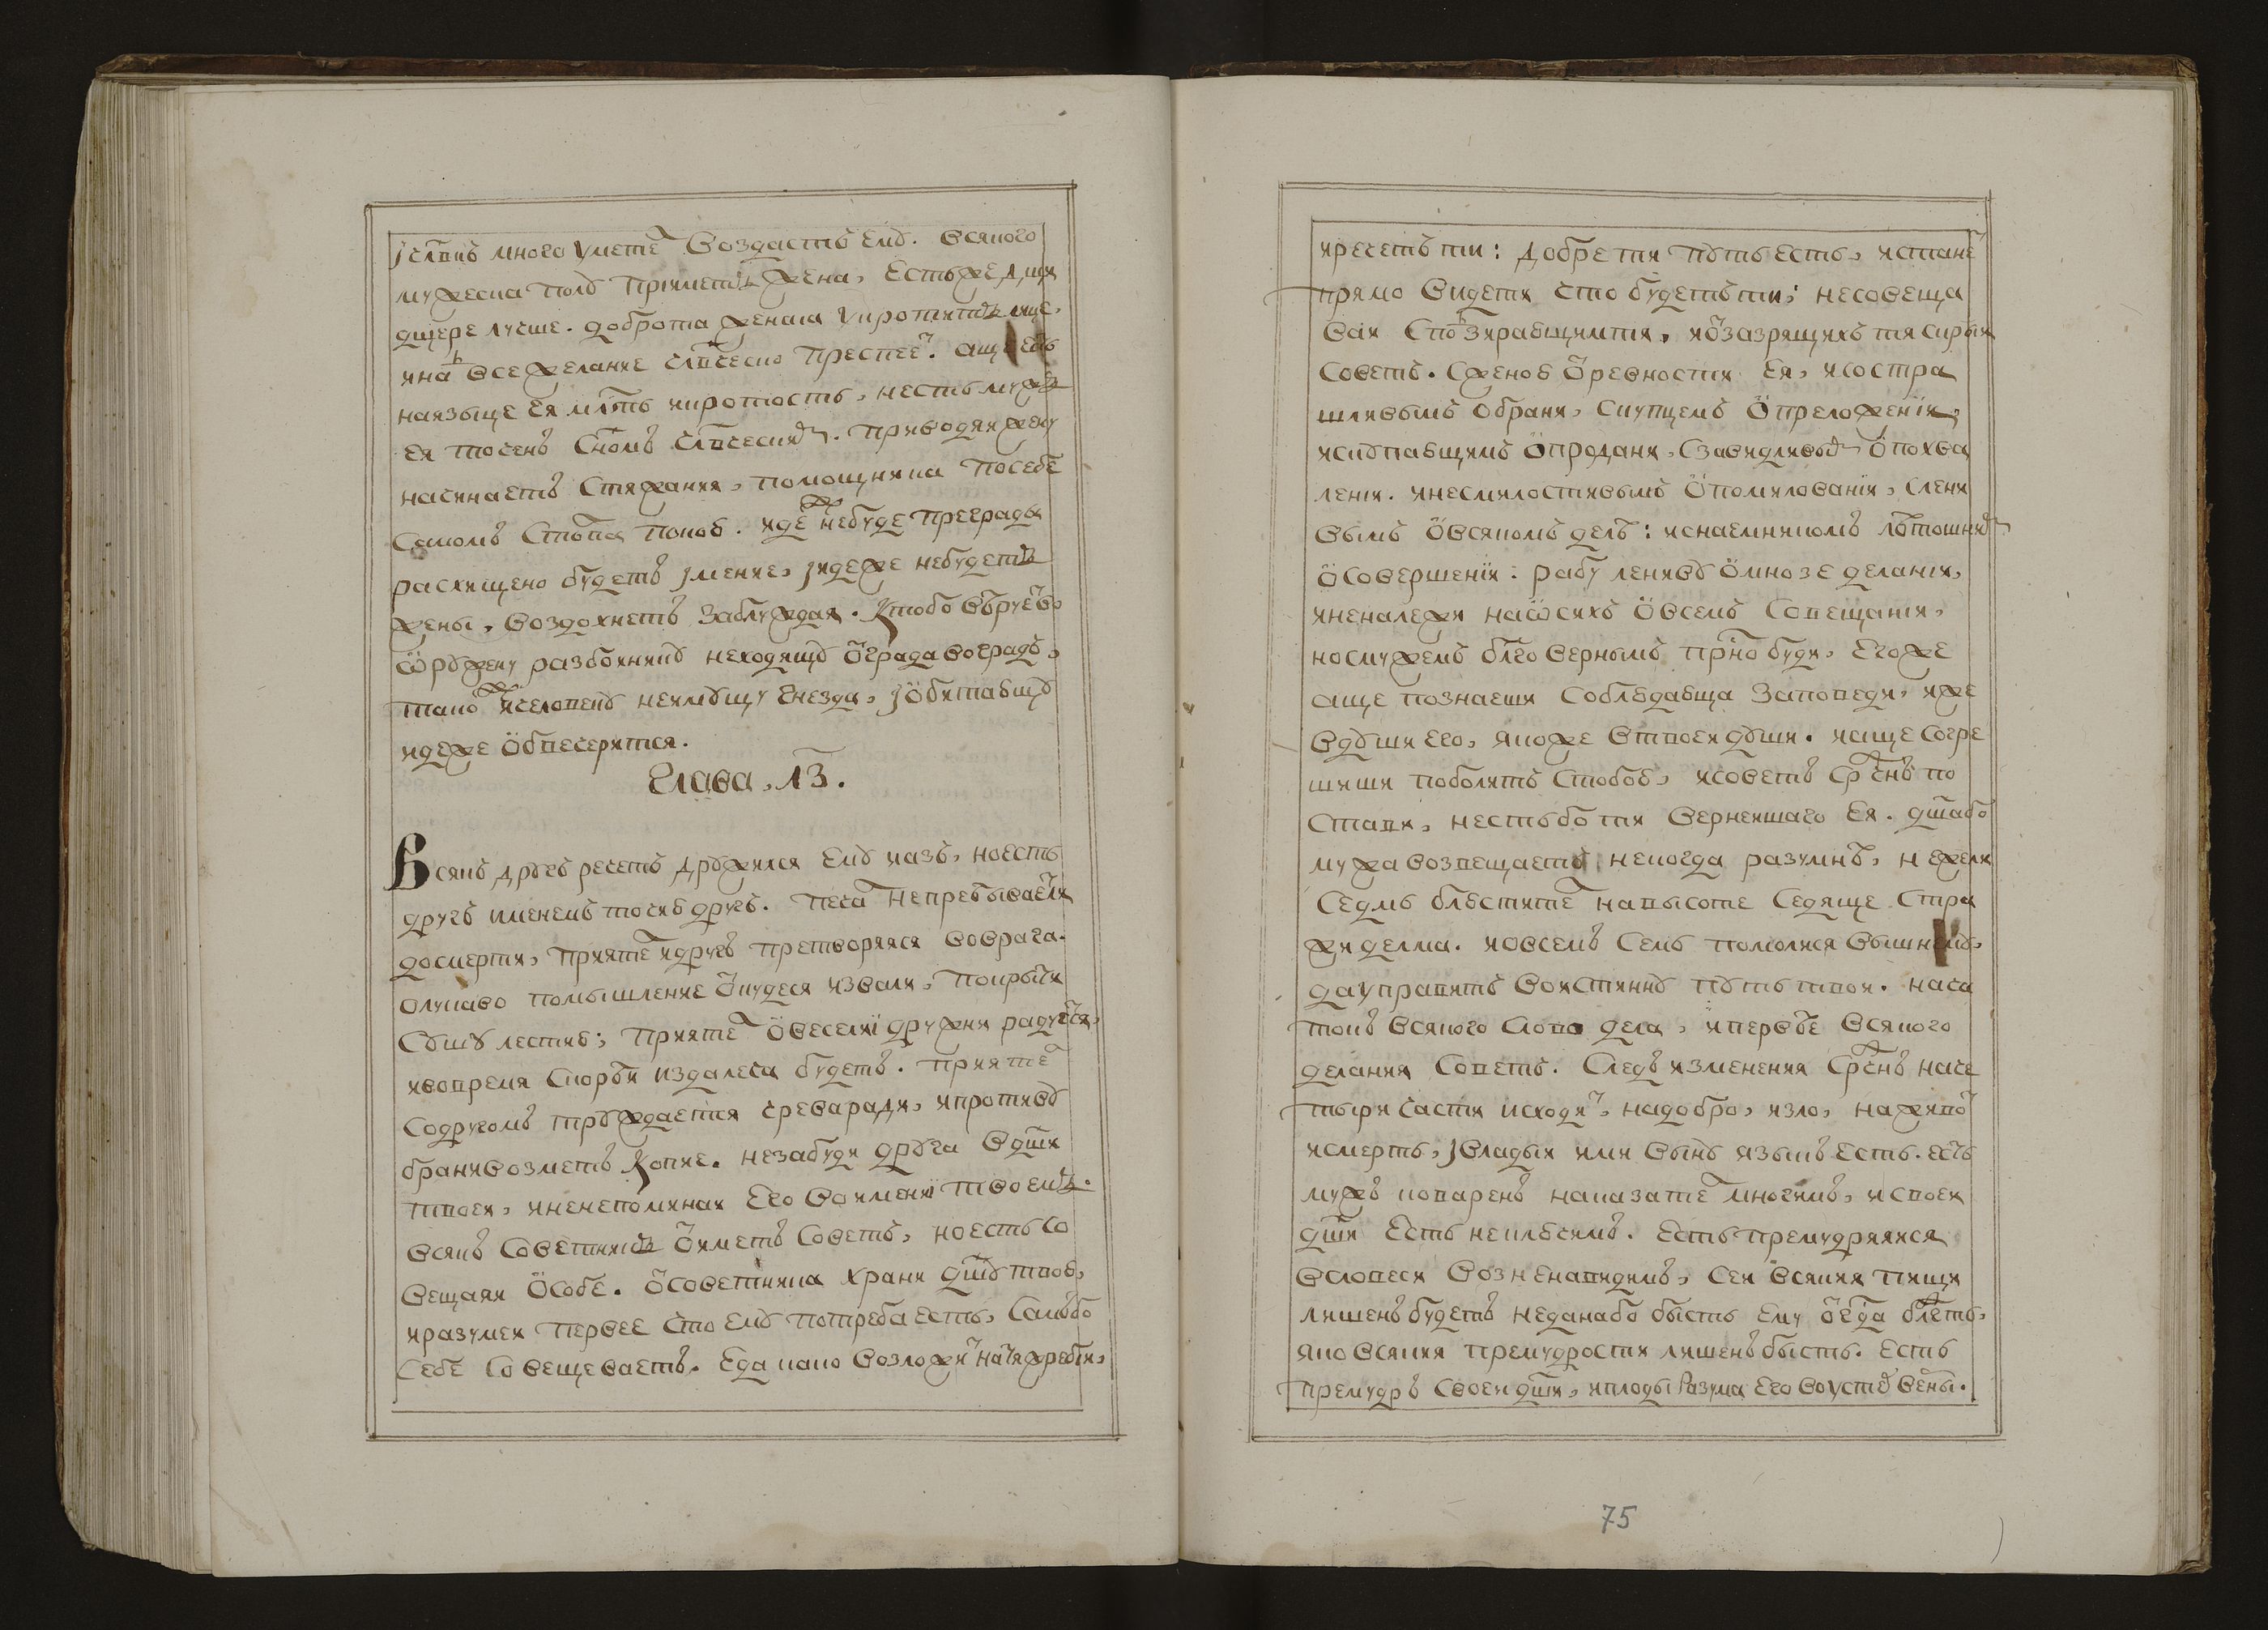 јсл҃вкъ много умете҇ Воздастъ Емꙋ. всякого
мужеска полꙋ Прїиметъ жена, Естьже дщи
дщере лучше. доброта женска укротитъ лице,
инавсе желание чл҃вческо преспее҇. аще есть
наязыце ея мл҃ть кротость, несть мужъ
ея точенъ Сн҃омъ чл҃вческиⷨ. Приводяи жену
начинаетъ Стяжания, помощника посебе
Самомъ Столпа покоꙗ. идеⷤ небуде преграды
расхищено будетъ јмение, јидеже небудетъ
жены, Воздохнетъ Заблуждая. Ктобо веруе҇во
ѡрꙋжену разбойникꙋ неходящꙋ ѿ града воградъ,
такоⷤ ичеловекꙋ неимꙋщу гнезда, јѡбитавшꙋ
идеже ѡбвечеритися.
Глава, ЛЗ.
Всякъ дрꙋгъ речетъ дрꙋжился Емꙋ иазъ, ноесть
другъ именемъ точию другъ. Печа҇ непребывае҇ли
досмерти, прияте҇ идругъ претворяися вовраги.
ѡлукаво помышление ѿкудеся извали, покрыти
Сꙋшꙋ лестию; прияте҇ ѡвеселїи дружни радуе҇ся,
ивовремя скорби издалеча будетъ. прияте҇
Содругомъ трꙋждается чреваради, ипротивꙋ
брани возметъ Копие. незабуди дрꙋга вдш҃и
твоеи, иненепоминаи Его воимени твоемъ.
всякъ Советникъ ѿиметъ Советъ, ноесть Со
вещаяи ѡсобе. ѿсоветника храни дш҃ꙋ твою,
иразумеи первее что емꙋ потреба есть, Самъбо
Себе Совещеваетъ. Еда како возложи҇ натя жребии,
иречетъ ти: добре ти пꙋть есть, истане҇
прямо Видети что будетъти; несовеща
ваи Стоⷡзирающимти, иѿзазрящихъ тя скрыи
Советъ. Сженою ѡревности ея, исостра
шливымъ обрани, Скупцемъ ѡпреложенїи,
искꙋпающимъ ѡпродани, Сзавидливыⷨ ѡпохва
ленїи. инесмилостивымъ ѡпомиловании, Слени
вымъ ѡвсякомъ делѣ: иснаемникомъ лѣтошниⷨ
ѡсовершенїи: рабу лениву ѡмнозе деланїи,
иненалежи насихъ ѡвсемъ Совещанїи,
носмужемъ бл҃говернымъ при҇но буди, Егоже
аще познаеши Соблюдающа Заповеди, иже
вдꙋши его, якоже втвоеи дꙋши. иаще согре
шиши поболитъ Стобою, исоветъ ср҃дченъ по
стави, нестьбо ти вернеишаго Ея. дш҃або
мужа возвещаетъ некогда разумнѣ, нежели
Седмь блюстите҇ навысоте Седяще Стра
жи делма. иовсемъ Семь помолися вышнемꙋ,
дауправитъ воистиннꙋ пꙋть твои. нача
токъ всякого Слово дела, ипервѣе всякого
делания Советъ. Следъ изменения ср҃дченъ наче
тыри части исходи҇, надобро, изло, наживо҇
исмерть, јвладыи ими вынѣ языкъ есть. есть
мужъ коваренъ наказате҇ многимъ, исвоеи
дш҃и Есть неключимъ. Есть премудряися
всловеси возненавидимъ, Сеи всякия пищи
лишенъ будетъ неданабо бысть Ему ѿ бг҃а бл҃гть,
яко всякия премудрости лишенъ бысть. Есть
премудръ своеи дш҃и, иплоды Разума Его воустеⷯ верны.
75